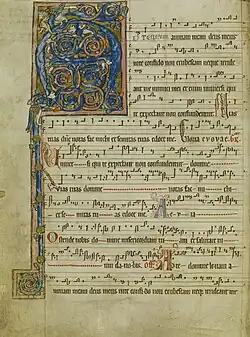 D TE LEVAVI
animam meam deus meus
in te confido non erubescam neque irride
ant me inimici mei etenim universi qui
te expectant non confundentur. Vias
tuas domine notas fac michi et semitas tuas edoce me. Gloria euouae
Universi qui te expectant non confundentur domine
Vias tuas domine notas fac mi chi
et se mitas tu as edoce me. A e v i a
Ostende nobis domine misericordiam tu am et salutare tu
um da no bis. off. Ad te domine levavi a
nimam meam deus meus in te confido non erubescam neque irrideant me